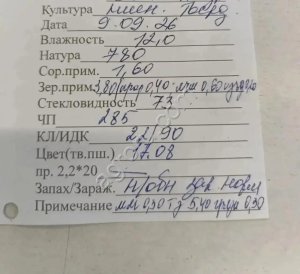 Культура пшен. тверд.
Дата 9.09.26
Влажность 12,0
Натура 780
Сор.прим. 1,60
Зер.прим. 0,40 0,60
Стекловидность 73
ЧП 285
КЛ/ИДК 22/90
Цвет(тв.пш.) 17.08
пр. 2,2*20
Запах/Зараж.
Примечание 0,30 5,40 0,30